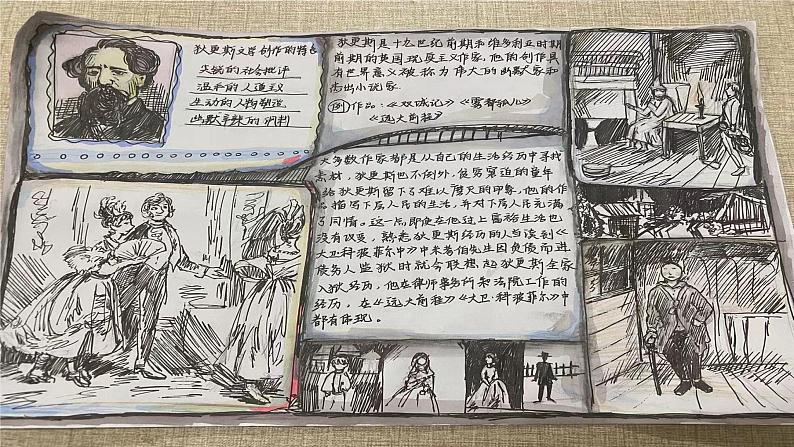 狄更斯文学创作的特色
尖锐的社会批评
温和的人道主义
生动的人物塑造
幽默辛辣的讽刺
狄更斯是十九世纪前期和维多利亚时期
前期的英国现实主义作家，他的创作具
有世界意义被称为伟大的幽默家和
杰出小说家。
例作品：《双城记》《雾都孤儿》
《远大前程》
大多数作家都是从自己的生活经历中寻找
素材，狄更斯也不例外，贫穷窘迫的童年
给狄更斯留下了难以磨灭的印象，他的作
品描写下层人民的生活，并对下层人民充满
了同情。这一点，即使在他过上富裕生活也
没有改变，熟悉狄更斯经历的人当读到《
大卫科波菲尔中》中米考伯先生因负债而进
债务人监狱时就会联想起狄更斯全家
入狱经历，他在律师事务所和法院工作的
经历，在《远大前程》《大卫·科波菲尔》中
都有体现。